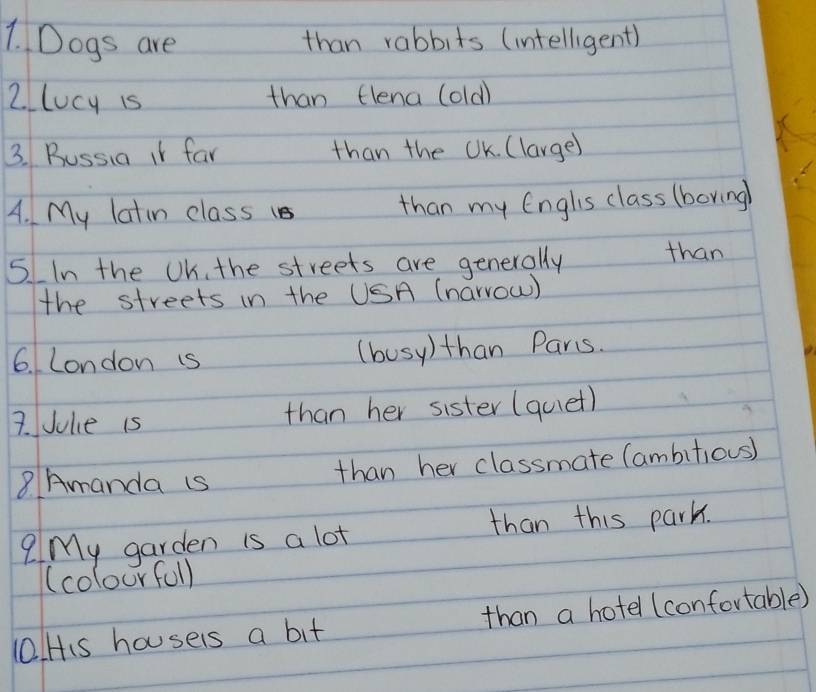 1. Dogs are than rabbits (intelligent)
2. Lucy is than Elena (old)
3. Russia is far than the UK. (large)
4. My latin class is than my Englis class (boring)
5. In the UK, the streets are generally than
the streets in the USA (narrow)
6. London is (busy) than Paris.
7. Julie is than her sister (quiet)
8. Amanda is than her classmate (ambitious)
9. My garden is a lot than this park.
(colourful)
10. His houseis a bit than a hotel (confortable)